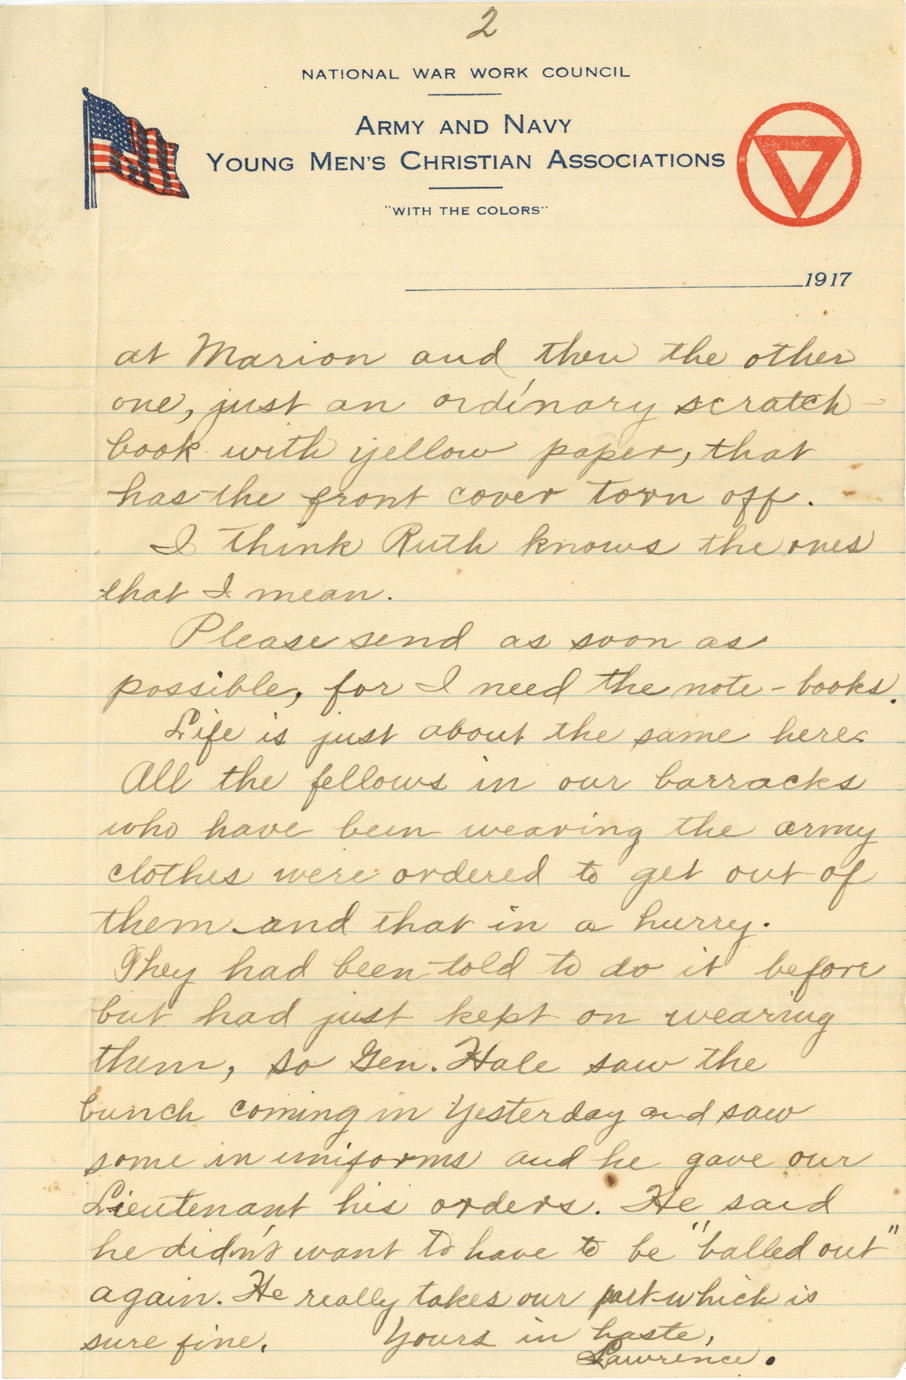 2
NATIONAL WAR WORK COUNCIL
ARMY AND NAVY
YOUNG MEN'S CHRISTIAN ASSOCIATIONS
"WITH THE COLORS"
1917
at Marion and then the other
one, just an ordinary scratch-
book with yellow paper, that
has the front cover torn off.
I think Ruth knows the ones
that I mean.
Please send as soon as
possible, for I need the note-books.
Life is just about the same here.
All the fellows in our barracks
who have been wearing the army
clothes were ordered to get out of
them and that in a hurry.
They had been told to do it before
but had just kept on wearing
them, so Gen. Hale saw the
bunch coming in yesterday and saw
some in uniforms and he gave our
Lieutenant his orders. He said
he didn't want to have to be "balled out"
again. He really takes our part which is
sure fine. Yours in haste,
Lawrence.